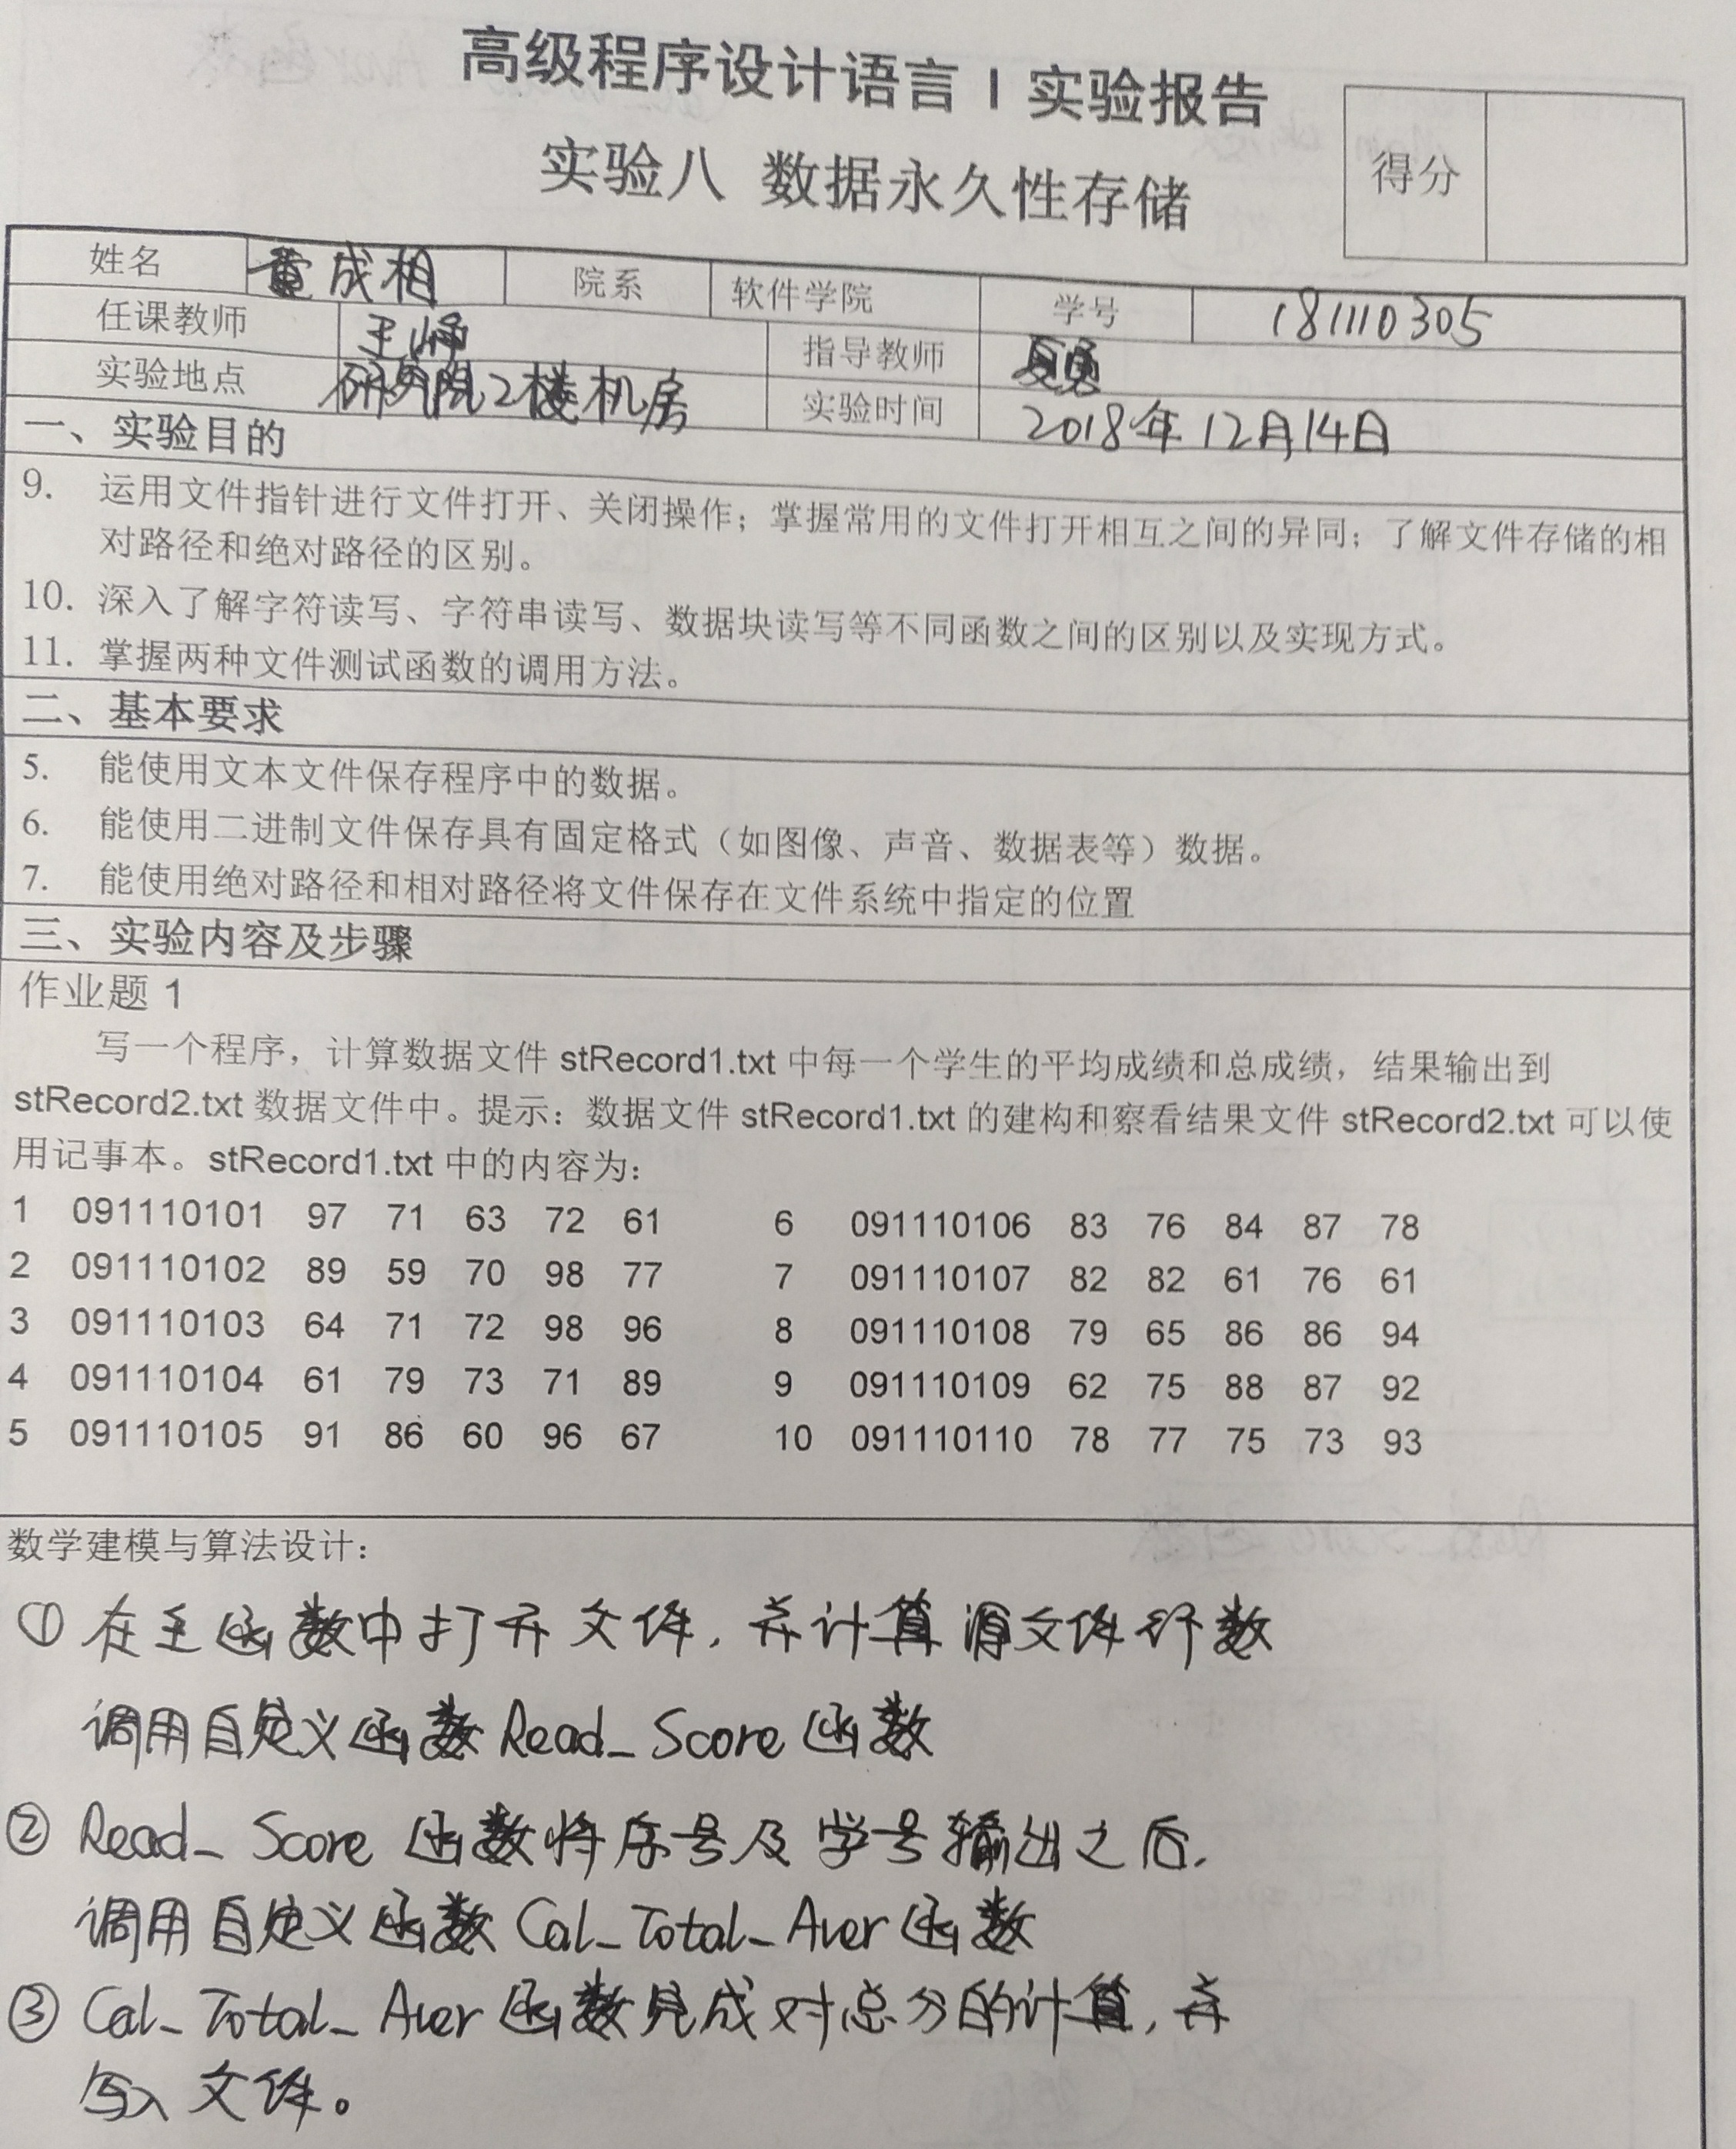 高级程序设计语言 I 实验报告
实验八 数据永久性存储
得分
姓名 童成相 院系 软件学院 学号 181110305
任课教师 王峥 指导教师 夏勇
实验地点 研究院2楼机房 实验时间 2018年12月14日
一、实验目的
9. 运用文件指针进行文件打开、关闭操作；掌握常用的文件打开相互之间的异同；了解文件存储的相
对路径和绝对路径的区别。
10. 深入了解字符读写、字符串读写、数据块读写等不同函数之间的区别以及实现方式。
11. 掌握两种文件测试函数的调用方法。
二、基本要求
5. 能使用文本文件保存程序中的数据。
6. 能使用二进制文件保存具有固定格式（如图像、声音、数据表等）数据。
7. 能使用绝对路径和相对路径将文件保存在文件系统中指定的位置
三、实验内容及步骤
作业题 1
写一个程序，计算数据文件 stRecord1.txt 中每一个学生的平均成绩和总成绩，结果输出到
stRecord2.txt 数据文件中。提示：数据文件 stRecord1.txt 的建构和察看结果文件 stRecord2.txt 可以使
用记事本。stRecord1.txt 中的内容为：
1 091110101 97 71 63 72 61 6 091110106 83 76 84 87 78
2 091110102 89 59 70 98 77 7 091110107 82 82 61 76 61
3 091110103 64 71 72 98 96 8 091110108 79 65 86 86 94
4 091110104 61 79 73 71 89 9 091110109 62 75 88 87 92
5 091110105 91 86 60 96 67 10 091110110 78 77 75 73 93
数学建模与算法设计：
① 在主函数中打开文件，并计算源文件行数
调用自定义函数 Read_Score 函数
② Read_Score 函数将序号及学号输出之后，
调用自定义函数 Cal_Total_Aver 函数
③ Cal_Total_Aver 函数完成对总分的计算，并
写入文件。